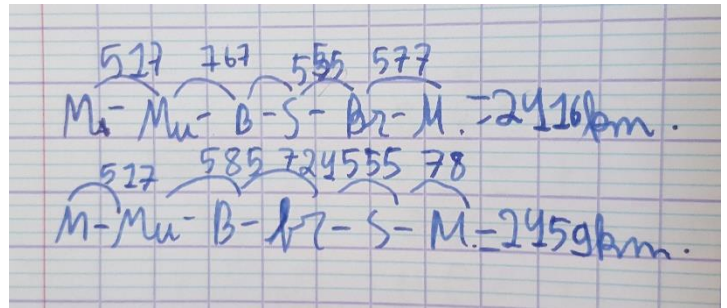 517 767 555 577
M - Mu - B - S - Br - M. = 2416km.
517 585 724 555 78
M - Mu - B - br - S - M. = 2459km.